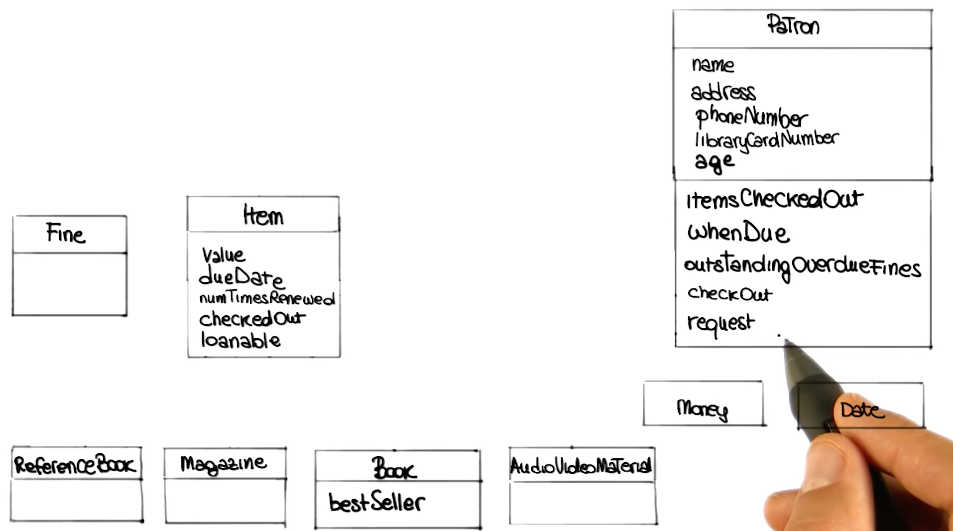 Patron
name
address
phoneNumber
libraryCardNumber
age
itemsCheckedOut
whenDue
outstandingOverdueFines
checkOut
request
Fine
Item
value
dueDate
numTimesRenewed
checkedOut
loanable
Money
Date
ReferenceBook
Magazine
Book
bestSeller
AudioVideoMaterial